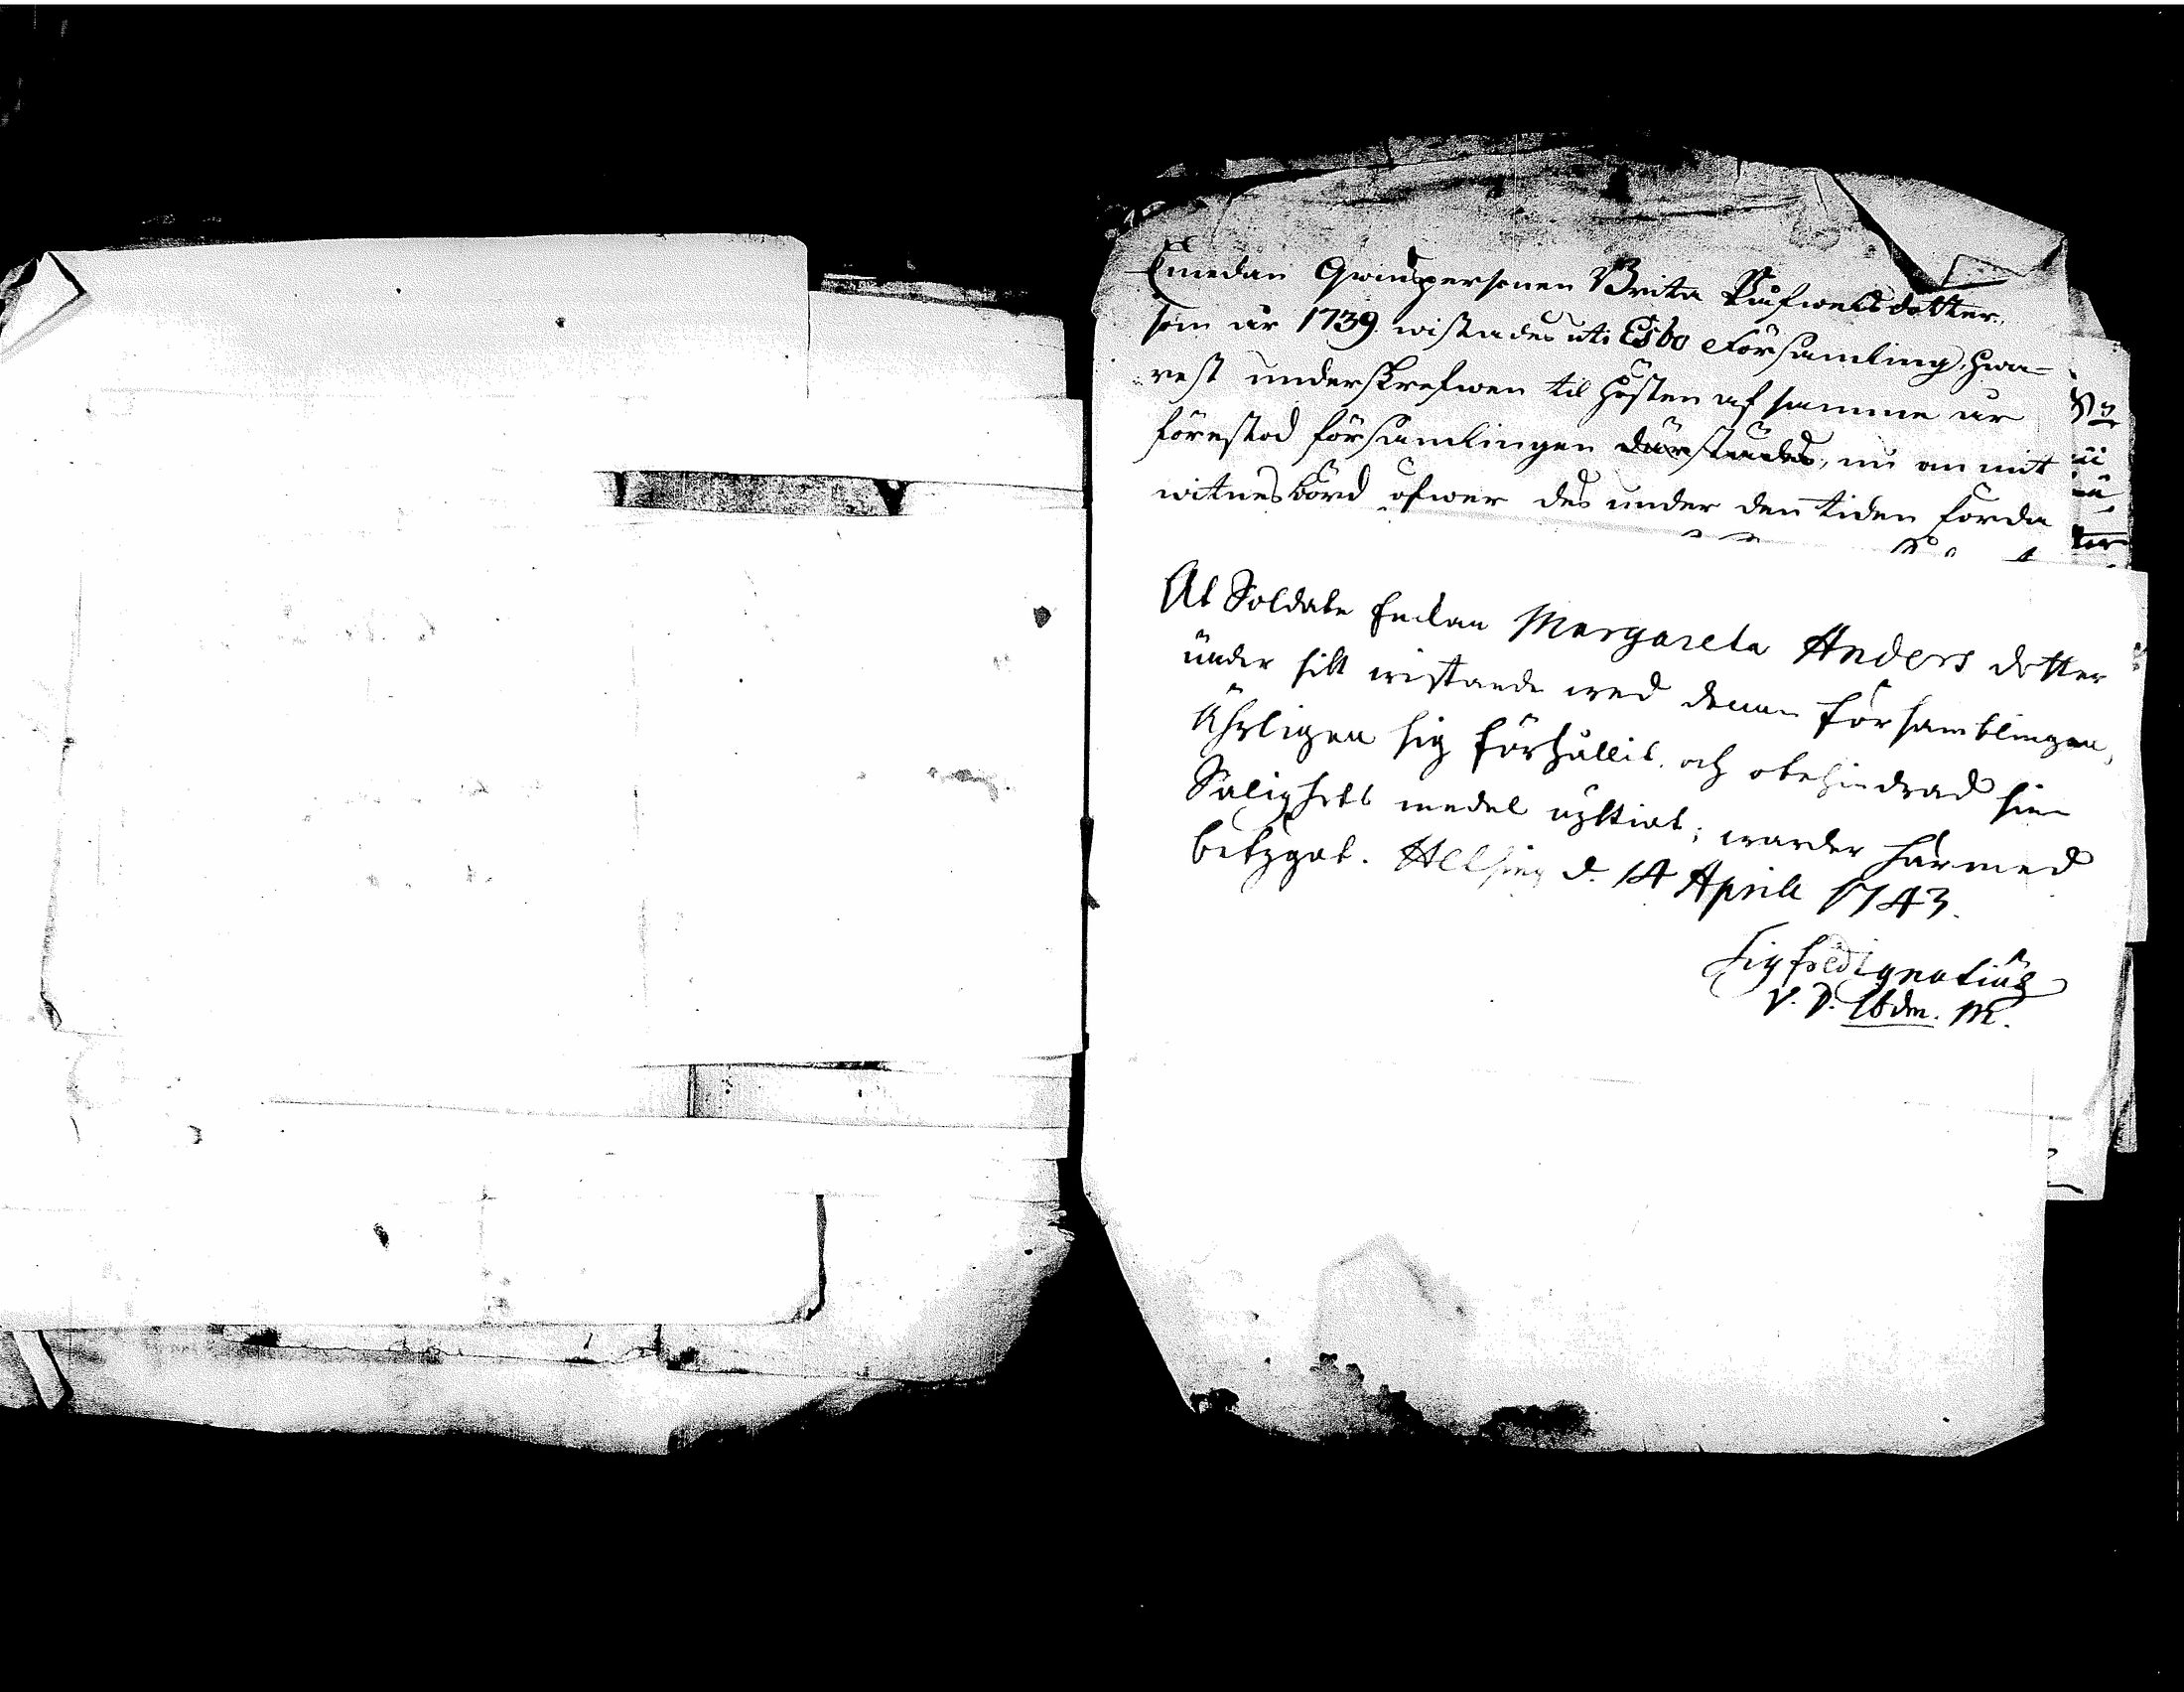 Emedan Qwinspersonen Brita Påfwelsdotter,
som år 1739 wistades uti Esbo Församling, hwa-
rest underskrefwen til hösten af samma år
förestod församlingen därstädes, nu om mit
witnesbörd öfwer des under den tiden förda
At Soldate Enckan Margareta Anders dotter
under sitt wistande wed denna församblingen,
Ährligen sig förhållit, och obehindrad sina
Salighets medel nyttiat; warder härmed
betygat. Helsing d. 14 April 1743.
Sigfred Ignatius
V. D. Cbdm. M.